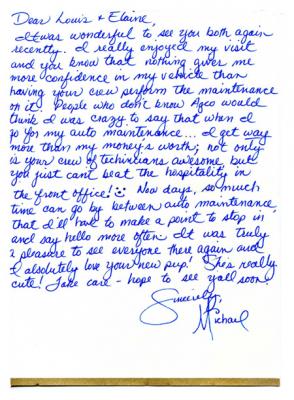 Dear Louis & Elaine,
It was wonderful to see you both again
recently. I really enjoyed my visit
and you know that nothing gives me
more confidence in my vehicle than
having your crew perform the maintenance
on it. People who don't know Ageo would
think I was crazy to say that when I
go for my auto maintenance... I get way
more than my money's worth; not only
is your crew of technicians awesome but
you just cant beat the hospitality in
the front office! Now days, so much
time can go by between auto maintenance
that I'll have to make a point to stop in
and say hello more often. It was truly
a pleasure to see everyone there again and
I absolutely love your new pup! She's really
cute! Take care - hope to see yall soon!
Sincerely,
Michael